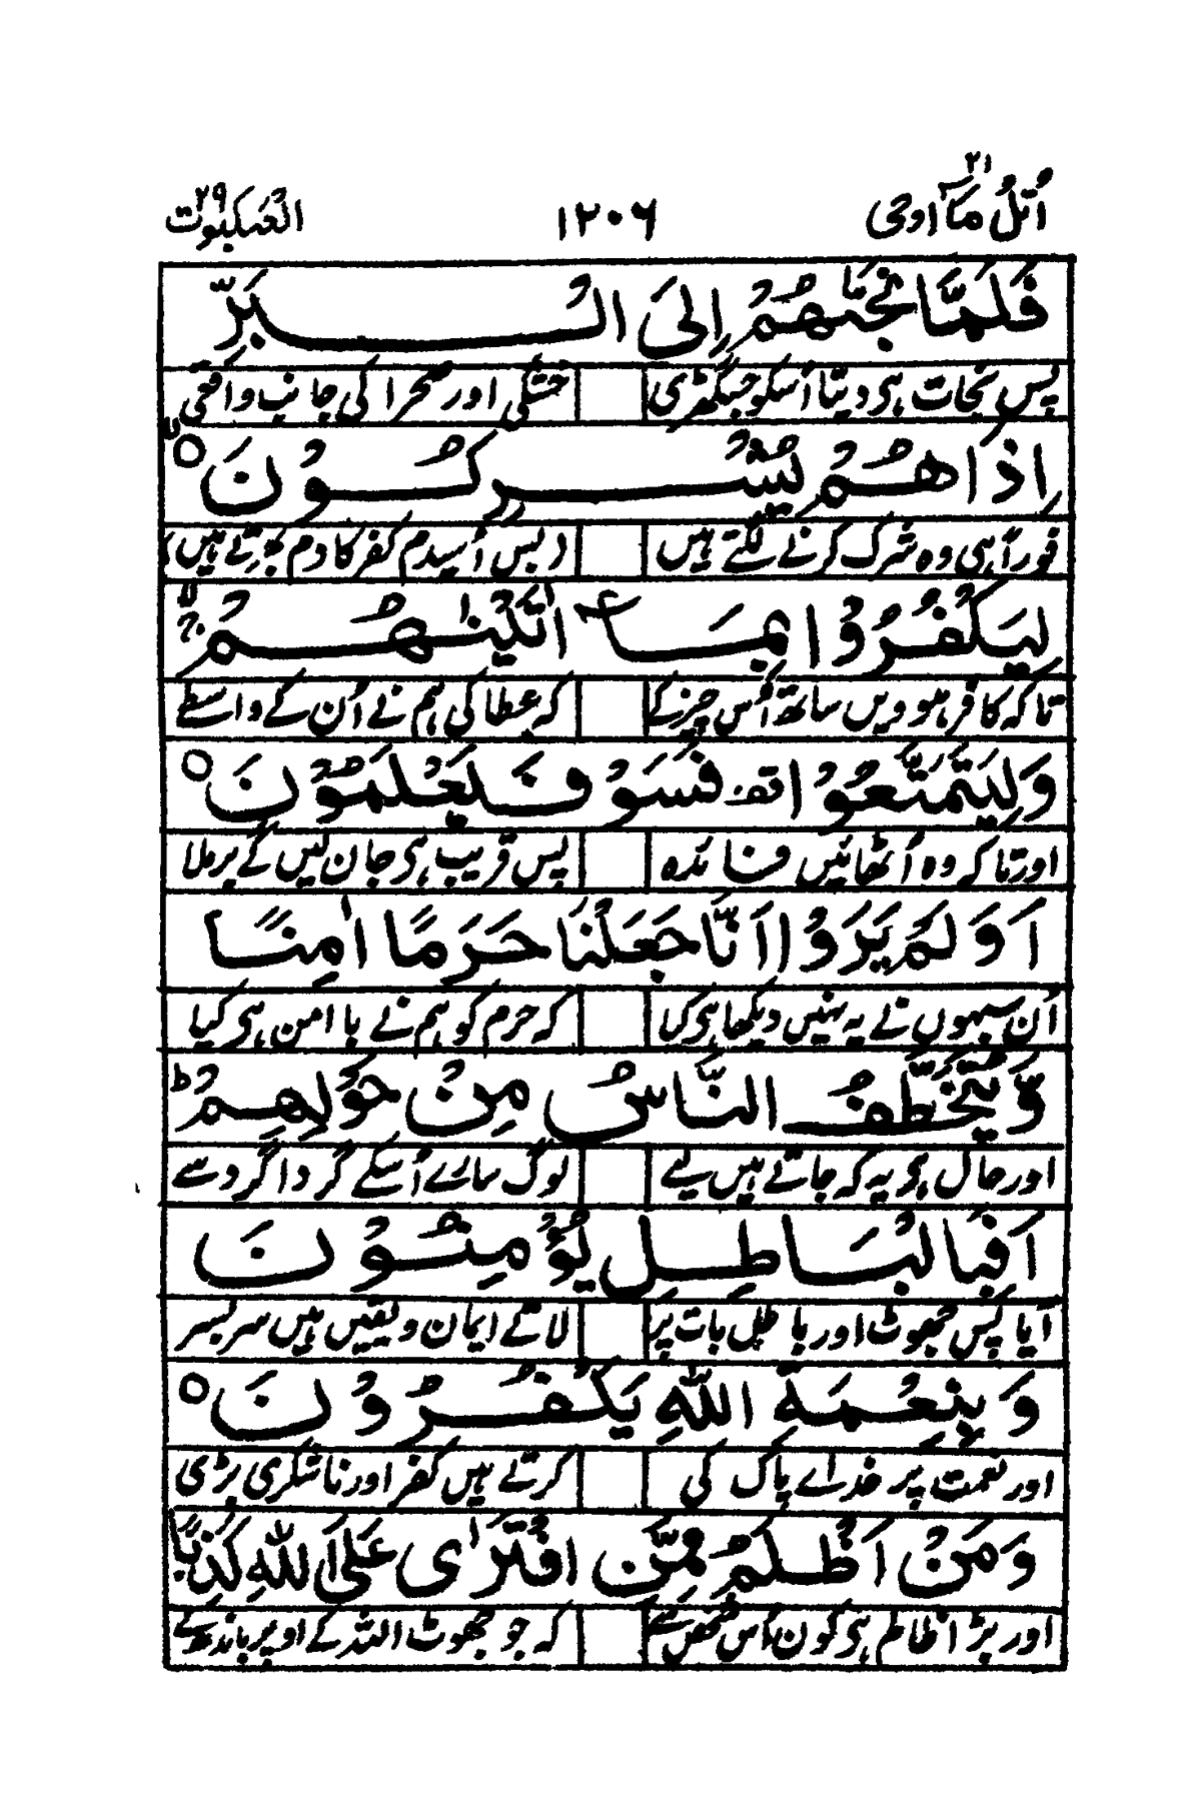 اُتْلُ مَآ اوحی ٢١ ١٢٠٦ العنکبوت ٢٩
فَلَمَّا نَجّٰىهُمْ اِلَى الْبَرِّ
پس نجات ہی دیتا اُسکو جبگھڑی خشکی اور صحرا کی جانب واقعی
اِذَا هُمْ يُشْرِكُوْنَ ۙ
فوراً ہی وہ شرک کرنے لگتے ہیں (بس اُسیدم کفر کا دم بھرتے ہیں)
لِيَكْفُرُوْا بِمَآ اٰتَيْنٰهُمْ ۙ
تاکہ کافر ہوویں ساتھ اُس چیز کے کہ عطا کی ہم نے اُن کے واسطے
وَلِيَتَمَتَّعُوْا وقفۃ فَسَوْفَ يَعْلَمُوْنَ ۝
اور تاکہ وہ اُٹھائیں فائدہ پس قریب ہی جان لیں گے برملا
اَوَلَمْ يَرَوْا اَنَّا جَعَلْنَا حَرَمًا اٰمِنًا
اُن سبھوں نے یہ نہیں دیکھا ہی کیا کہ حرم کو ہم نے با امن ہی کیا
وَّيُتَخَطَّفُ النَّاسُ مِنْ حَوْلِهِمْ ط
اور حال ہی یہ کہ جاتے ہیں لیے لوگ سارے اُسکے گرداگرد سے
اَفَبِالْبَاطِلِ يُؤْمِنُوْنَ
آیا پس جھوٹ اور باطل بات پر لاتے ایمان و یقیں ہیں سر بسر
وَبِنِعْمَةِ اللّٰهِ يَكْفُرُوْنَ ۝
اور نعمت پر خدائے پاک کی کرتے ہیں کفر اور ناشکری بڑی
وَمَنْ اَظْلَمُ مِمَّنِ افْتَرٰى عَلَى اللّٰهِ كَذِبًا
اور بڑا ظالم ہی کون اُس شخص سے کہ جو جھوٹ اللہ کے اوپر باندھ لے